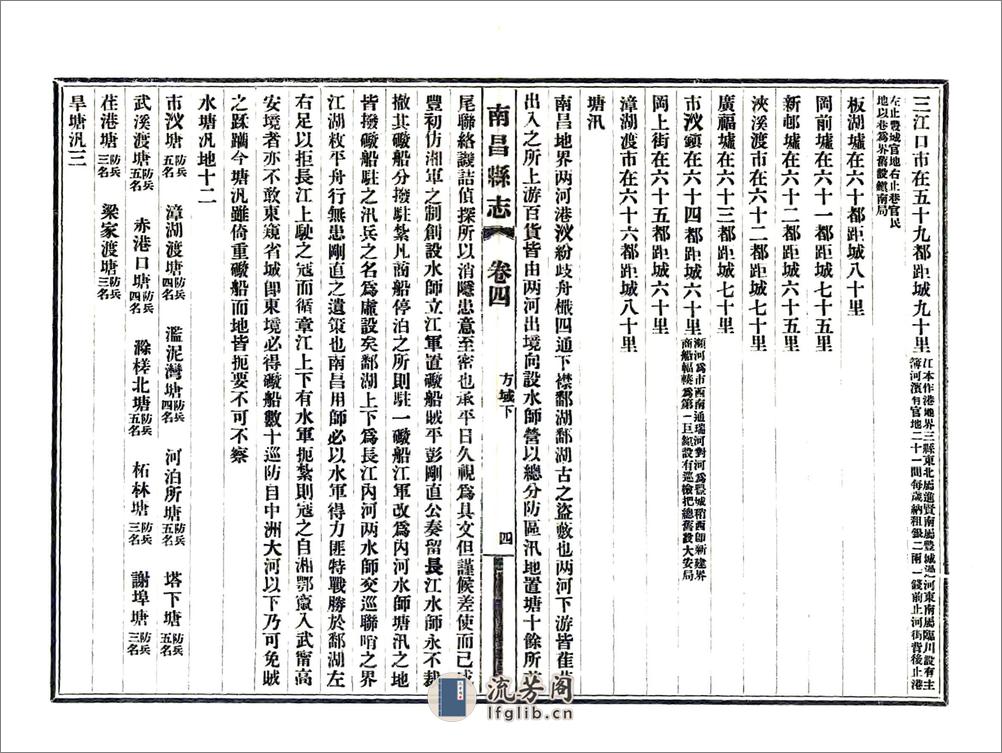 三江口市在五十九都距城九十里江本作港地界三縣東北屬進賢南屬豐城過河東南屬臨川設有主簿河濱有官地二十一間每歲納租銀二兩一錢前止河街背後止港
左止豐城官地右止巷官民地以巷爲界舊設鎮南局
板湖墟在六十都距城八十里
岡前墟在六十一都距城七十五里
新邨墟在六十二都距城六十五里
浹溪渡市在六十二都距城七十里
廣福墟在六十三都距城七十里
市汊鎮在六十四都距城六十里瀕河爲市西南通瑞河對河爲豐城稍西卽新建界商船輻輳爲第一巨鎮設有巡檢把總舊設大安局
岡上街在六十五都距城六十里
漳湖渡市在六十六都距城八十里
塘汛
南昌地界两河港汊紛歧舟檝四通下襟鄱湖鄱湖古之盜藪也两河下游皆萑
出入之所上游百貨皆由两河出境向設水師營以總分防區汛地置塘十餘所
南昌縣志
卷四
方域下
四
尾聯絡譏詰偵探所以消隱患意至密也承平日久視爲具文但謹候差使而已
豐初仿湘軍之制創設水師立江軍置礮船賊平彭剛直公奏留長江水師永不裁
撤其礮船分撥駐紮凡商船停泊之所則駐一礮船江軍改爲内河水師塘汛之地
皆撥礮船駐之汛兵之名爲虛設矣鄱湖上下爲長江内河两水師交巡聯哨之界
江湖枚平舟行無患剛直之遺策也南昌用師必以水軍得力匪特戰勝於鄱湖左
右足以拒長江上駛之寇而循章江上下有水軍扼紮則寇之自湘鄂竄入武甯高
安境者亦不敢東窺省城卽東境必得礮船數十巡防自中洲大河以下乃可免賊
之蹂躪今塘汛雖倚重礮船而地皆扼要不可不察
水塘汛地十二
市汊塘防兵五名　漳湖渡塘防兵四名　濫泥灣塘防兵四名　河泊所塘防兵五名　塔下塘防兵五名
武溪渡塘防兵五名　赤港口塘防兵四名　滁槎北塘防兵五名　柘林塘防兵三名　謝埠塘防兵三名
茌港塘防兵三名　梁家渡塘防兵三名
旱塘汛三
流芳阁
lfglib.cn